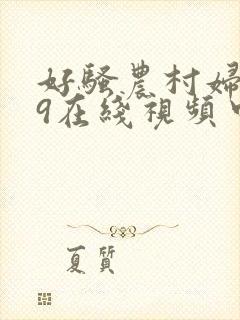 好騷農村婦
9在綫視頻
夏質